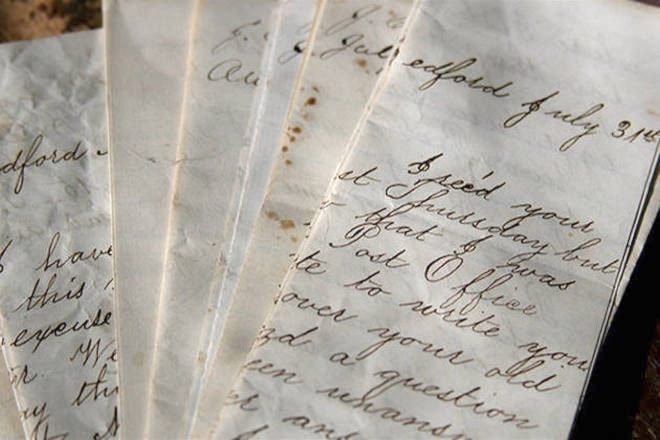 dford
I have
this
excuse
r. We
ay th
J.
Au
J.
July
edford July 31st
I rec'd your
st Thursday but
that I was
Post Office
te to write you
over your old
nd a question
een unans
er an